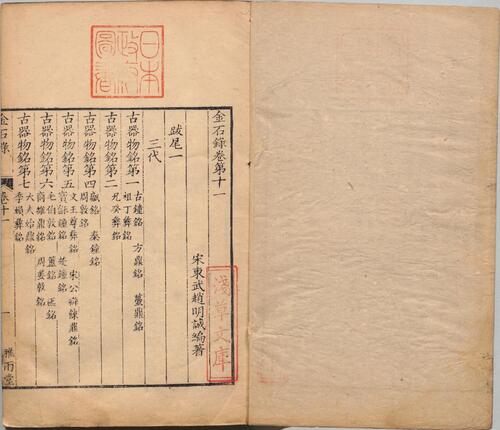 日本政府圖書
金石錄卷第十一
宋東武趙明誠編著
淺草文庫
跋尾一
三代
古器物銘第一 古鐘銘 方鼎銘 蠆鼎銘
祖丁彝銘
古器物銘第二 兄癸彝銘
古器物銘第四 甗銘 秦鐘銘
周敦銘
古器物銘第五 文王尊彝銘 宋公䜌餗鼎銘
寶龢鐘銘 楚鐘銘
古器物銘第六 毛伯敦銘 簠銘 匜銘
商雒鼎銘 周姜敦銘
古器物銘第七 大夫始鼎銘
季嬴彝銘
金石錄 卷十一 一 雅雨堂